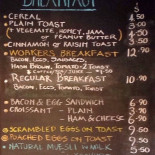 BREAKFAST
• CEREAL 4.50
• PLAIN TOAST 3.50
(+ VEGEMITE, HONEY, JAM
or PEANUT BUTTER)
• CINNAMON or RAISIN TOAST
• WORKERS BREAKFAST
BACON, EGGS, SAUSAGES,
HASH BROWN, TOMATO, 2 TOAST
• REGULAR BREAKFAST
BACON, EGGS, TOMATO & TOAST
• BACON & EGG SANDWICH
• CROISSANT - PLAIN
- HAM & CHEESE
• SCRAMBLED EGGS ON TOAST
• POACHED EGGS ON TOAST
• NATURAL MUESLI w MILK